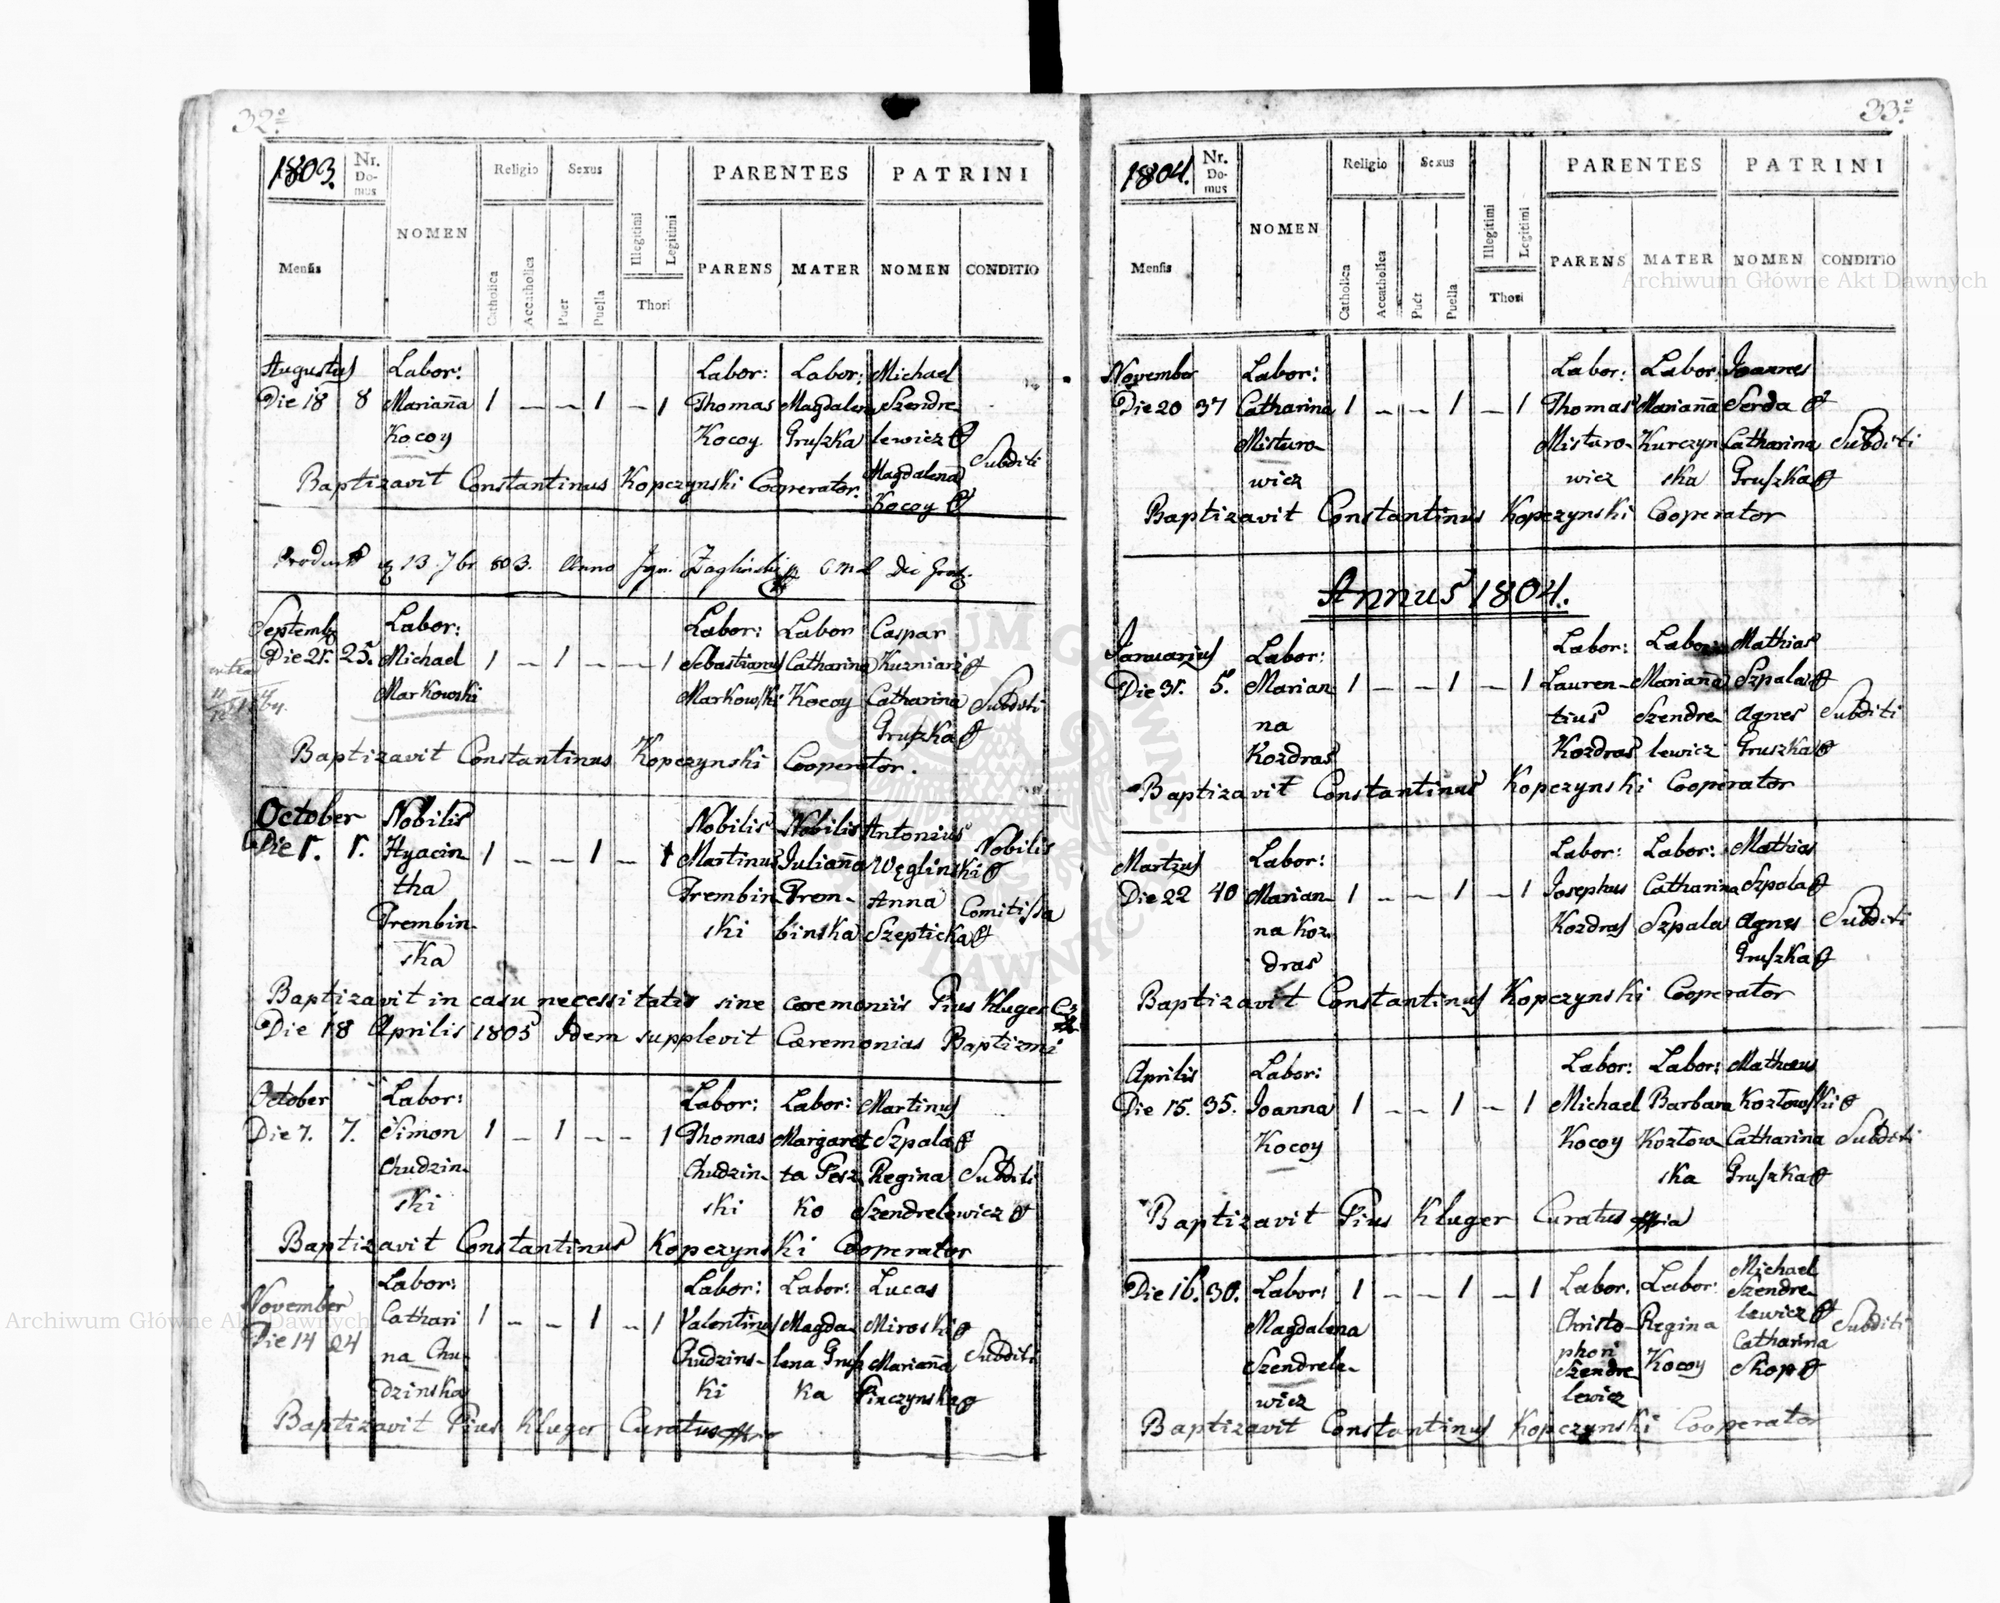 32.
1803. Nr. Domus NOMEN Religio Sexus PARENTES PATRINI
Mensis Catholica Accatholica Puer Puella Illegitimi Legitimi Thori PARENS MATER NOMEN CONDITIO
Augustus Labor: Labor: Labor: Michael
Die 18 8 Mariaña 1 — — 1 — 1 Thomas Magdalena Szendre
Kocoy Kocoy Gruszka lewicz
Magdalena Subditi
Baptizavit Constantinus Kopczynski Cooperator.
Kocoy
13 7br 803.
Septemb Labor: Labor: Labor Caspar
Die 21. 25. Michael 1 — 1 — — 1 Sebastianus Catharina Kuzniarz
Markowski Markowski Kocoy Catharina Subditi
Gruszka
Baptizavit Constantinus Kopczynski Cooperator.
October Nobilis Nobilis Nobilis Antonius Nobilis
Die 1. 1. Hyacin- 1 — — 1 — 1 Martinus Juliaña Węglinski
tha Trembin- Trem- Anna Comitissa
Trembin- ski binska Szepticka
ska
Baptizavit in casu necessitatis sine ceremoniis Pius Kluger
Die 18 Aprilis 1805 Idem supplevit Cæremonias Baptizmi
October Labor: Labor: Labor: Martinus
Die 7. 7. Simon 1 — 1 — — 1 Thomas Margaret Szpala
Chudzin- Chudzin- ta Pesz Regina Subditi
ski ski ko Szendrelewicz
Baptizavit Constantinus Kopczynski Cooperator
November Labor: Labor: Labor: Lucas
Die 14 24 Cathari 1 — — 1 — 1 Valentinus Magda- Miroski
na Chu- Chudzins- lena Grusz Mariaña Subditi
dzinska ki ka Pinczynska
Baptizavit Pius Kluger Curatus
33.
1804. Nr. Domus NOMEN Religio Sexus PARENTES PATRINI
Mensis Catholica Accatholica Puer Puella Illegitimi Legitimi Thori PARENS MATER NOMEN CONDITIO
November Labor: Labor: Labor: Joannes
Die 20 37 Catharina 1 — — 1 — 1 Thomas Mariaña Serda
Misturo- Misturo- Kurczyn Catharina Subditi
wicz wicz ska Gruszka
Baptizavit Constantinus Kopczynski Cooperator
Annus 1804.
Januarius Labor: Labor: Labor: Mathias
Die 31. 5. Marian- 1 — — 1 — 1 Lauren- Mariana Szpala
na tius Szendre- Agnes Subditi
Kozdras Kozdras lewicz Gruszka
Baptizavit Constantinus Kopczynski Cooperator
Martius Labor: Labor: Labor: Mathias
Die 22 40 Marian- 1 — — 1 — 1 Josephus Catharina Szpala
na Koz- Kozdras Szpala Agnes Subditi
dras Gruszka
Baptizavit Constantinus Kopczynski Cooperator
Aprilis Labor: Labor: Labor: Matheus
Die 15. 35. Joanna 1 — — 1 — 1 Michael Barbara Kozłowski
Kocoy Kocoy Kozłow- Catharina Subditi
ska Gruszka
Baptizavit Pius Kluger Curatus
Die 16. 30. Labor: 1 — — 1 — 1 Labor. Labor: Michael
Magdalena Christo- Regina Szendre
Szendrele- phori Kocoy lewicz Subditi
wicz Szendre Catharina
lewicz Skop
Baptizavit Constantinus Kopczynski Cooperator
Archiwum Główne Akt Dawnych
Archiwum Główne Akt Dawnych